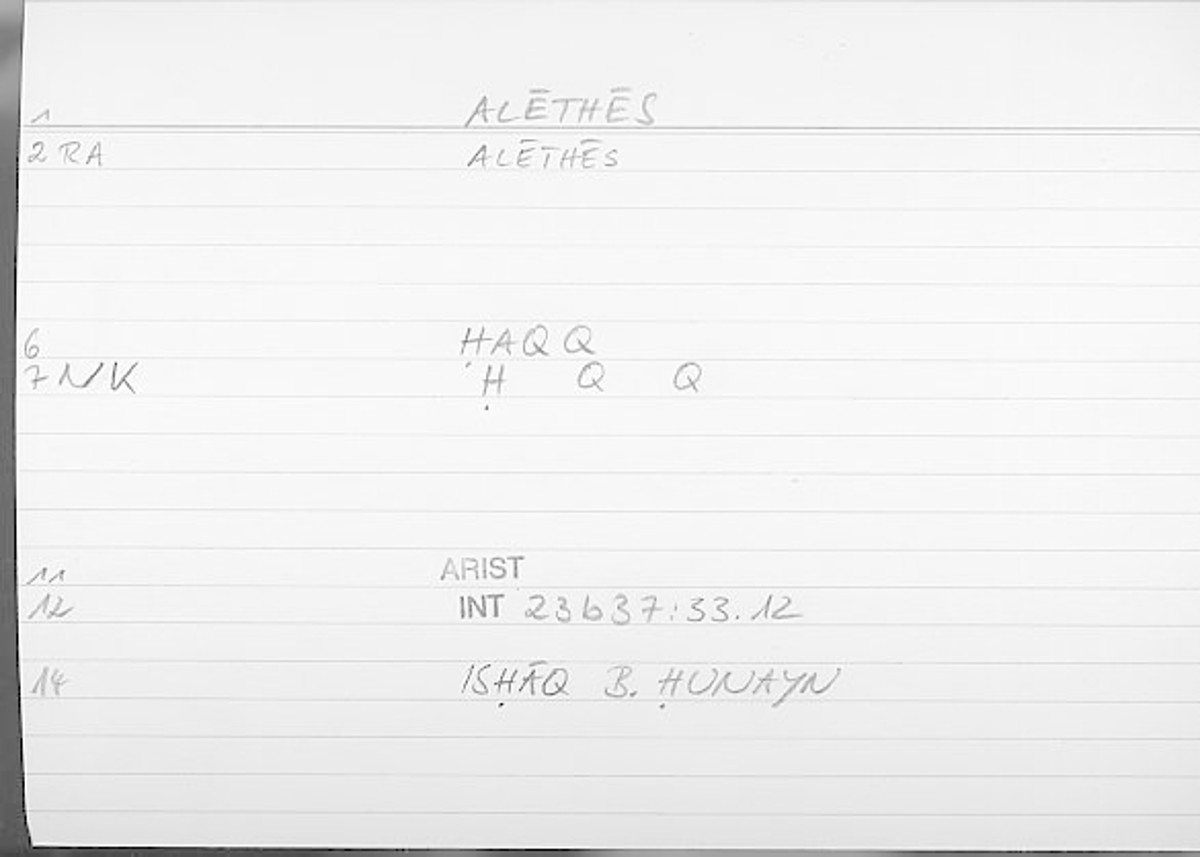 1 ALĒTHĒS
2 RA ALĒTHĒS
6 ḤAQQ
7 NK Ḥ Q Q
11 ARIST
12 INT 23b37:33.12
14 ISḤĀQ B. ḤUNAYN